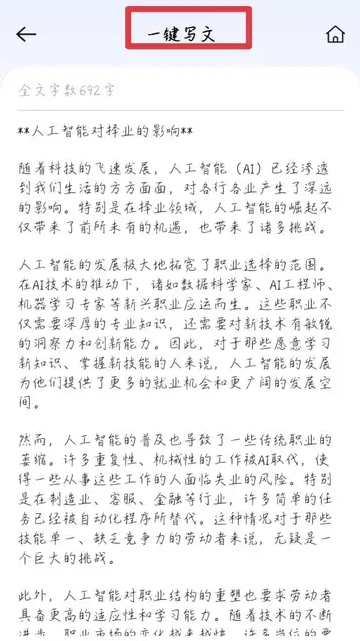 一键写文
全文字数692字
**人工智能对择业的影响**
随着科技的飞速发展，人工智能（AI）已经渗透
到我们生活的方方面面，对各行各业产生了深远
的影响。特别是在择业领域，人工智能的崛起不
仅带来了前所未有的机遇，也带来了诸多挑战。
人工智能的发展极大地拓宽了职业选择的范围。
在AI技术的推动下，诸如数据科学家、AI工程师、
机器学习专家等新兴职业应运而生。这些职业不
仅需要深厚的专业知识，还需要对新技术有敏锐
的洞察力和创新能力。因此，对于那些愿意学习
新知识、掌握新技能的人来说，人工智能的发展
为他们提供了更多的就业机会和更广阔的发展空
间。
然而，人工智能的普及也导致了一些传统职业的
萎缩。许多重复性、机械性的工作被AI取代，使
得一些从事这些工作的人面临失业的风险。特别
是在制造业、客服、金融等行业，许多简单的任
务已经被自动化程序所替代。这种情况对于那些
技能单一、缺乏竞争力的劳动者来说，无疑是一
个巨大的挑战。
此外，人工智能对职业结构的重塑也要求劳动者
具备更高的适应性和学习能力。随着技术的不断
进步，职业市场的变化越来越快，许多岗位的要